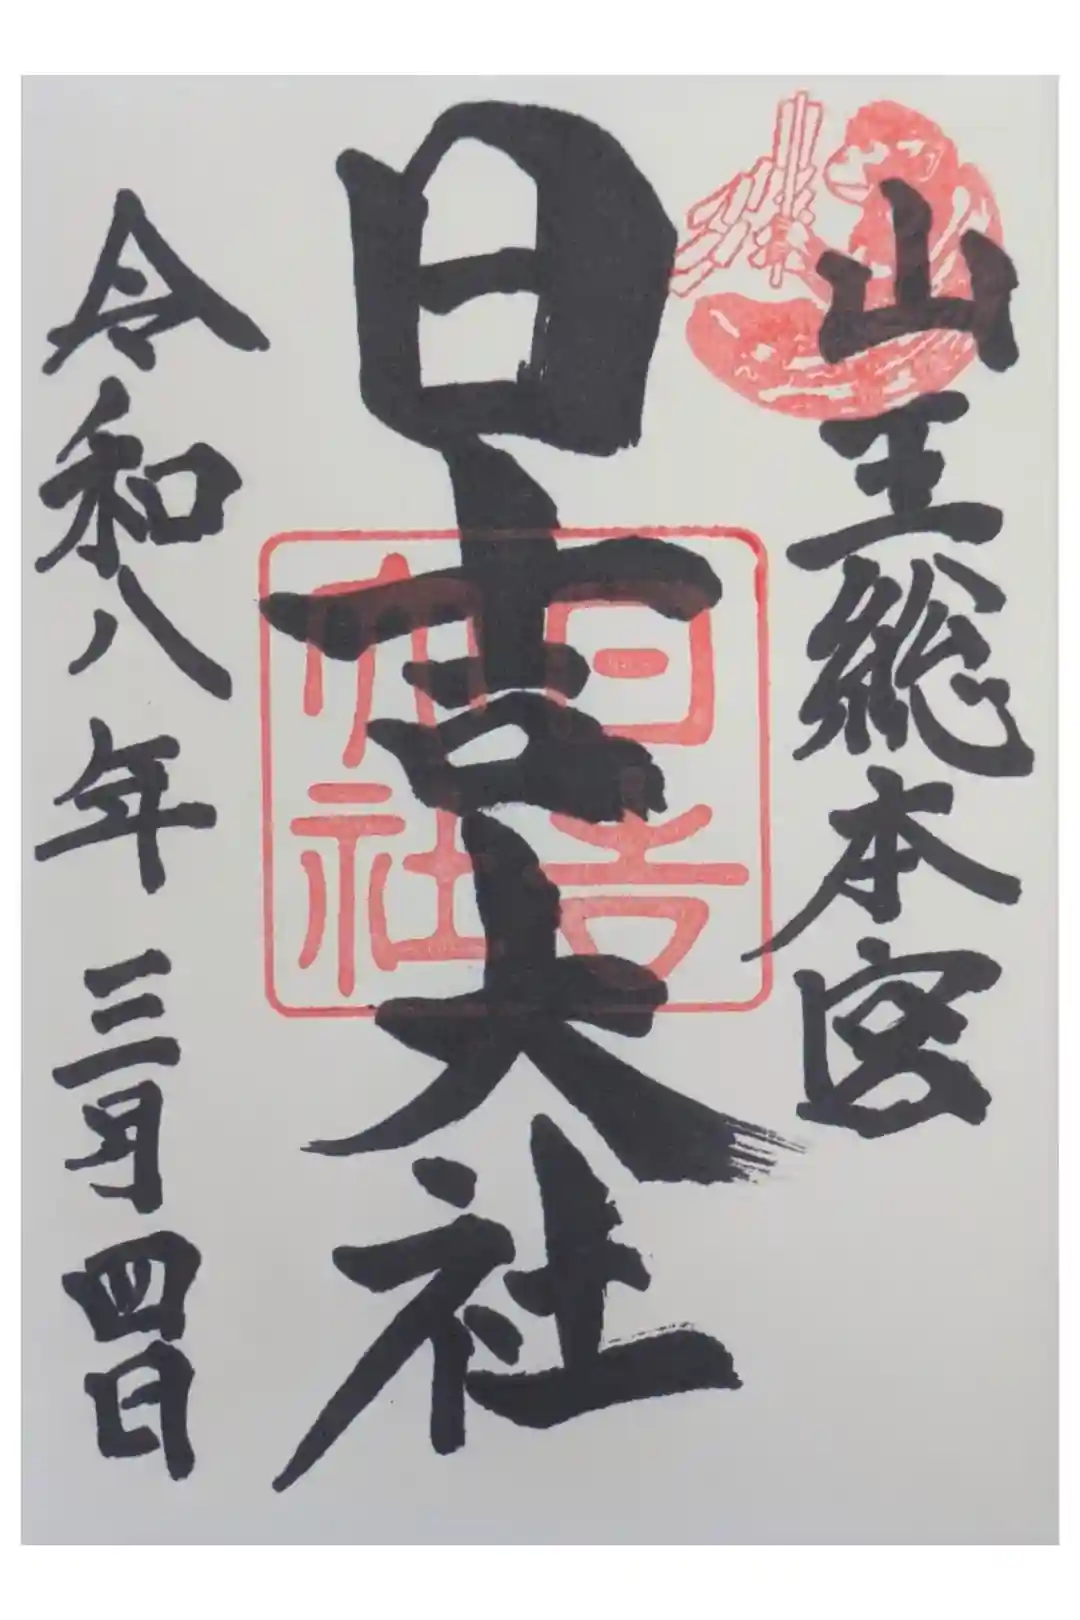 山王総本宮
日吉大社
日吉
大社
令和八年三月四日